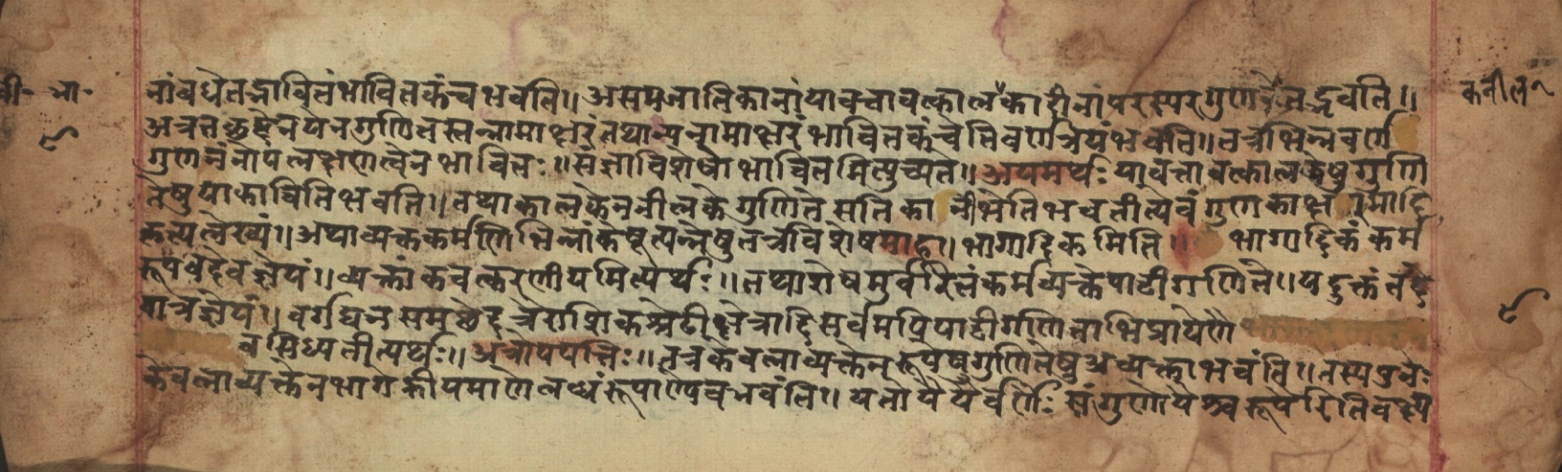 बी- भा-
नांवधेतद्भावितंभावितकंचभवति॥ असमजातिकानांयावत्तावत्कालकादीनांपरस्परगुणनेतद्भवति॥
कनीलन
अत्रतत्कृष्टेनयेनगुणितस्तन्नामाक्षरंतथान्यन्नामाक्षरंभावितकंचेतिवर्णत्रियंभवति॥ तत्रभिन्नवर्णे
गुणनंनामलक्षणत्वेनभावितः॥ संज्ञाविशेषोभावितमित्युच्यते॥ अयमर्थः यावत्तावत्कालकेषुगुणि
तेषुयाकाविितिभवति॥ तथाकालकेननीलकेगुणितेसतिकानीभेतिभवतीत्येवंगुणकाक्षनुमादि
कृत्यलेख्यं॥ अथाव्यक्तकर्मणिभिन्नांकेषूत्पन्नेषुतत्रविशेषमाह॥ भागादिकमिति॥ भागादिकंकर्म
रूपवदेवज्ञेयं॥ व्यक्तांकवत्करणीयमित्यर्थः॥ तथाशेषमुर्वरितंकर्मव्यक्तेपाटीगणिते॥ यदुक्तंतदे
वात्रज्ञेयं॥ वर्गघनसमच्छेदत्रैराशिकश्रेढीक्षेत्रादिसर्वमपिपाटीगणितोभिप्रायेणै
वसिध्यतीत्यर्थः॥ अत्रोपपत्तिः॥ तत्रकेवलाव्यक्तेनरूपेषुगुणितेषुअव्यक्ताभवंति॥ तस्यपुनः
केवलाव्यक्तेनभागेह्रीयमाणेलब्धंरूपाण्येवभवंति॥ यतोयैर्यैर्वर्णैः संगुणोयैश्चरूपैरितिवक्ष्ये